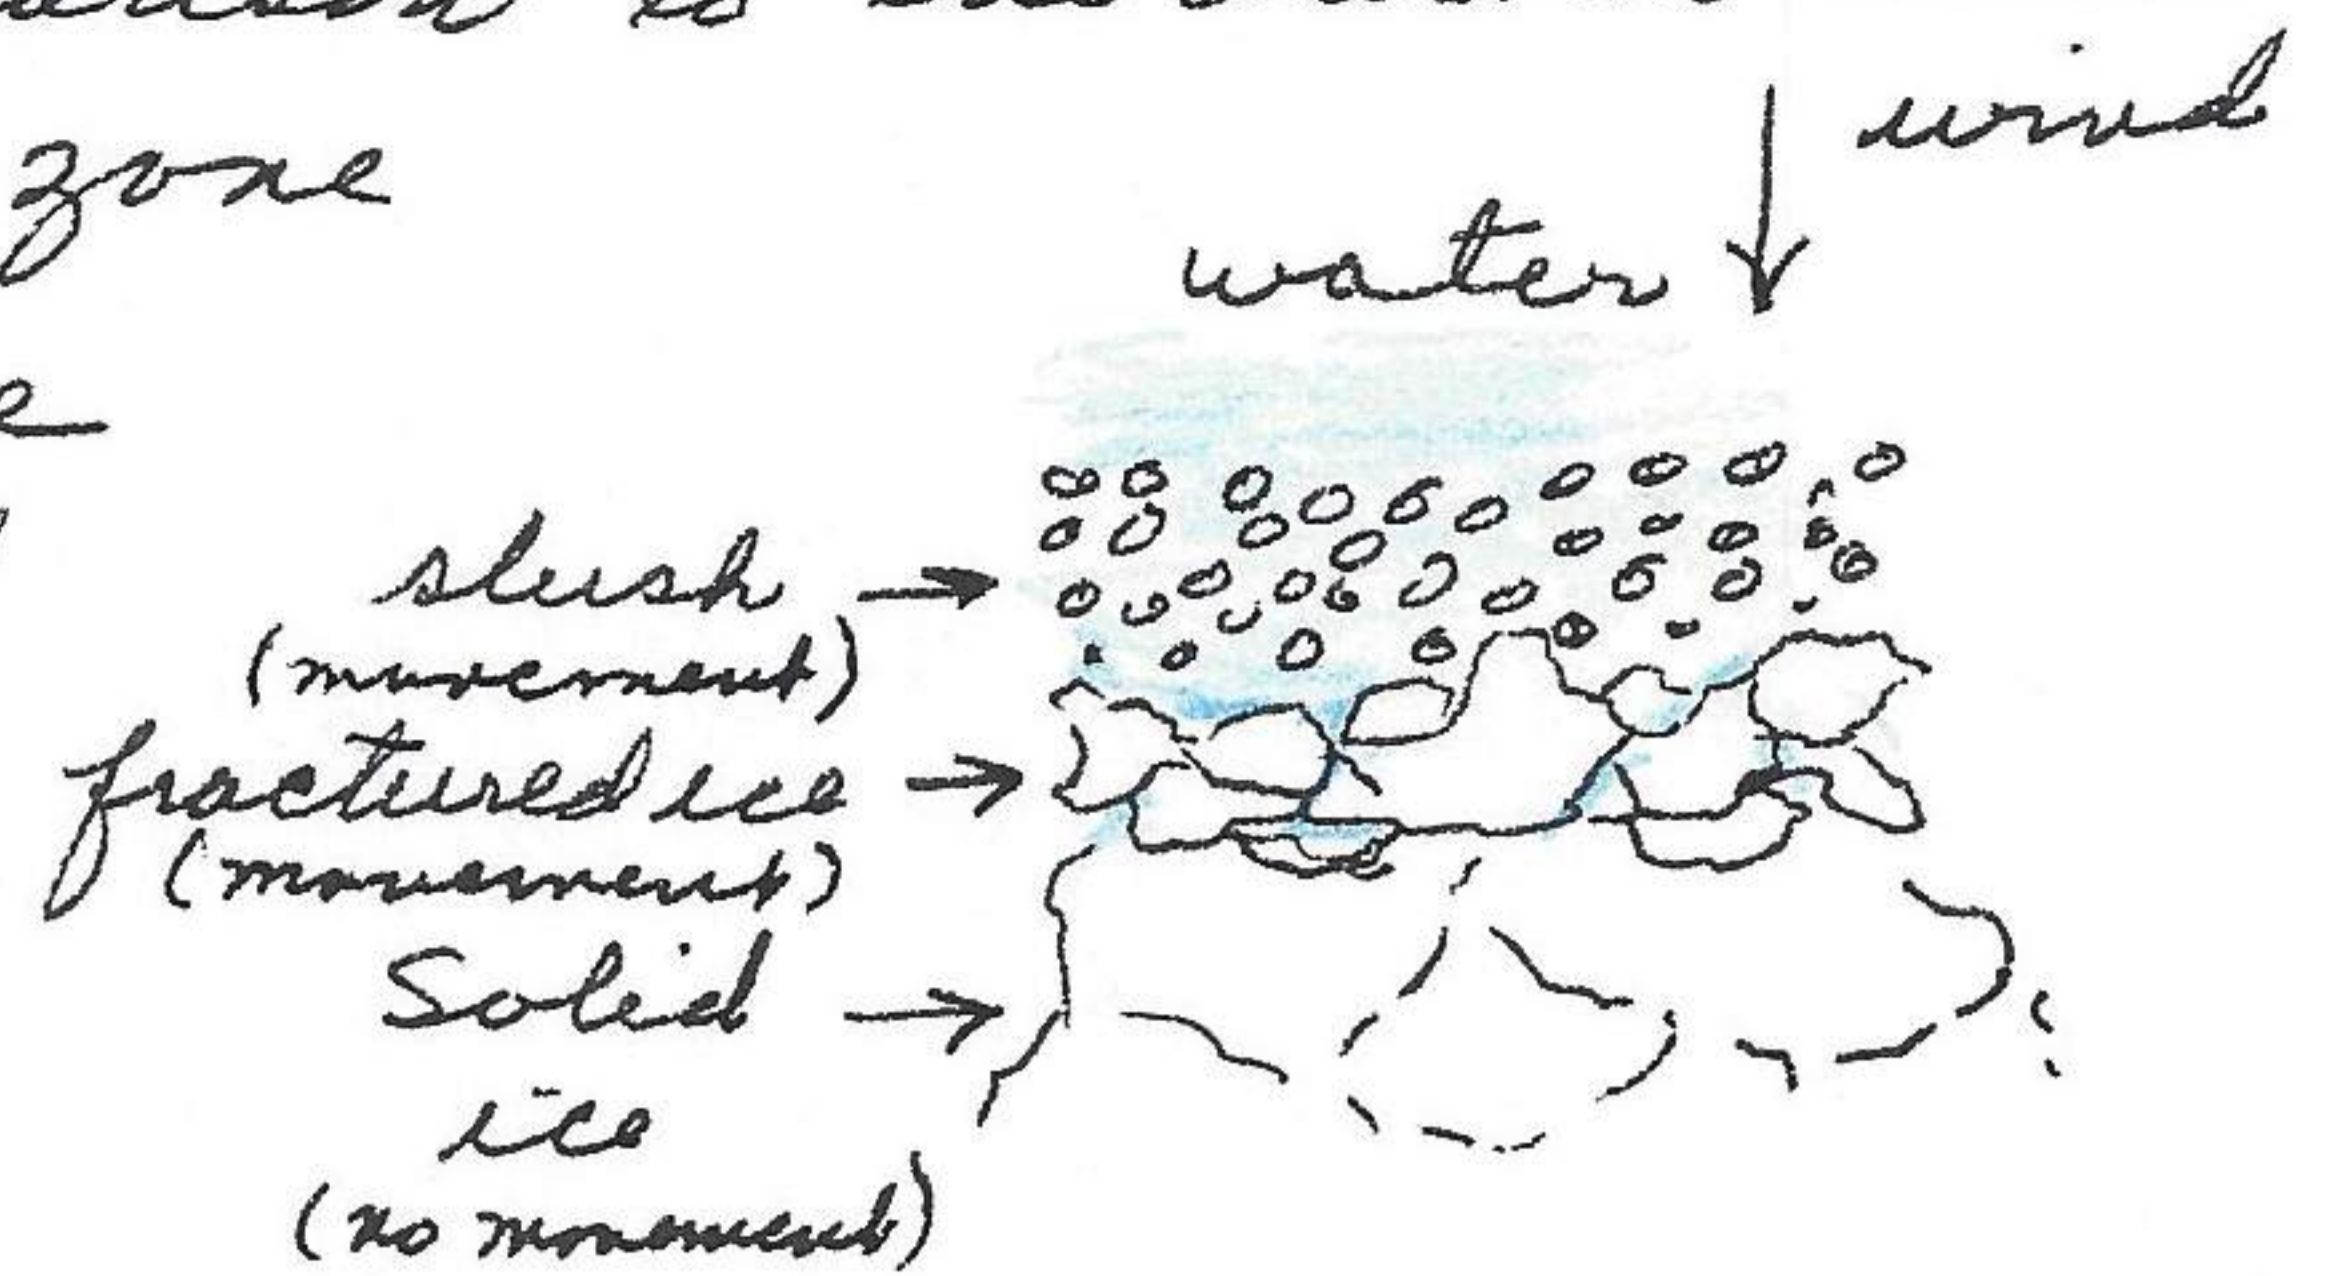 is
wind
zone
water
slush
(movement)
fractured ice
(movement)
Solid
ice
(no movement)